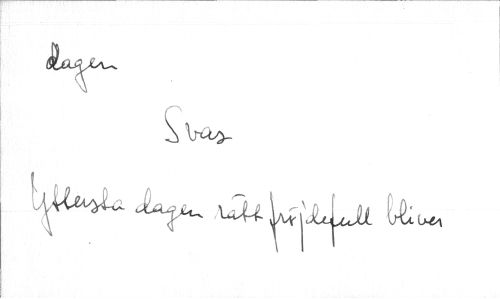 dagen
Svas
Yttersta dagen rätt fröjdefull bliver